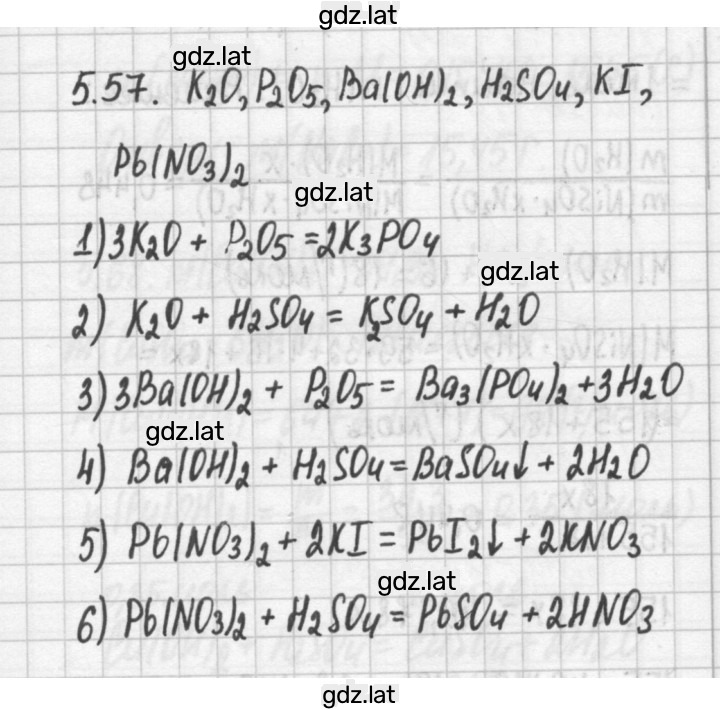 gdz.lat
gdz.lat
5.57. K₂O, P₂O₅, Ba(OH)₂, H₂SO₄, KI,
Pb(NO₃)₂
gdz.lat
1) 3K₂O + P₂O₅ = 2K₃PO₄
gdz.lat
2) K₂O + H₂SO₄ = K₂SO₄ + H₂O
3) 3Ba(OH)₂ + P₂O₅ = Ba₃(PO₄)₂ + 3H₂O
gdz.lat
4) Ba(OH)₂ + H₂SO₄ = BaSO₄↓ + 2H₂O
5) Pb(NO₃)₂ + 2KI = PbI₂↓ + 2KNO₃
gdz.lat
6) Pb(NO₃)₂ + H₂SO₄ = PbSO₄ + 2HNO₃
gdz.lat